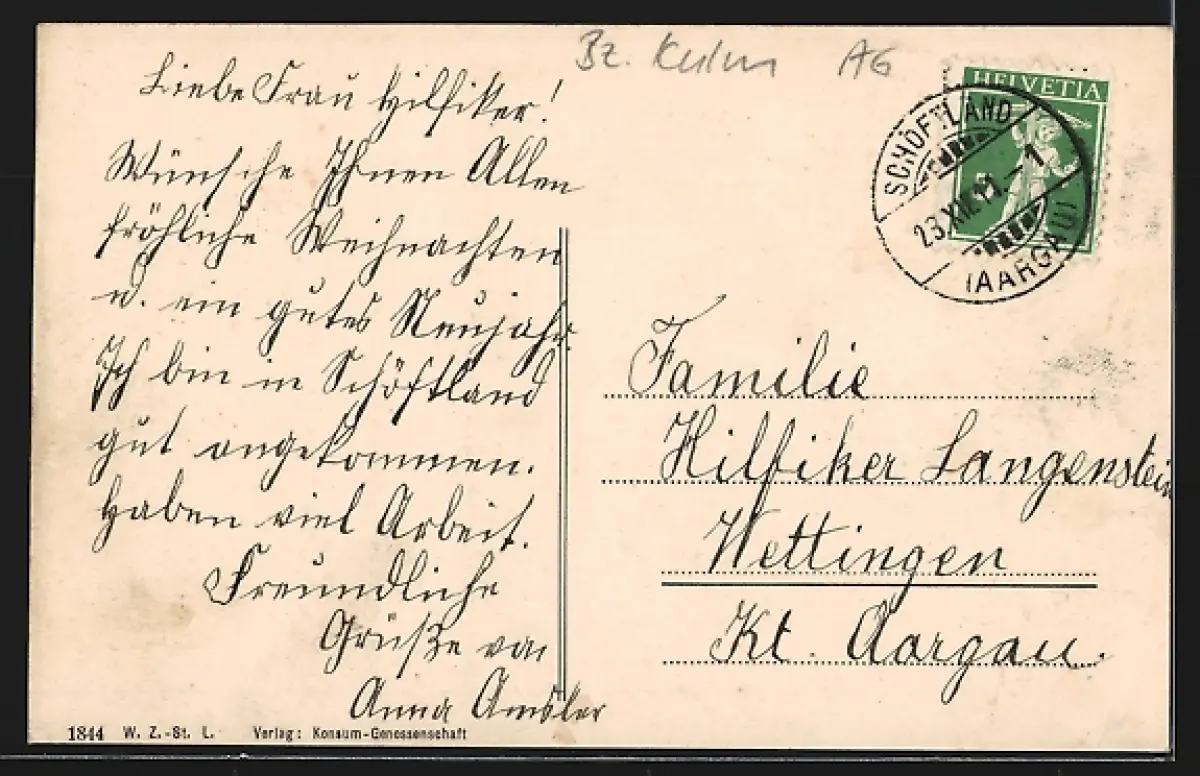 Bz. Kulm AG
Liebe Frau Hilfiker!
Wünsche Ihnen Allen
fröhliche Weihnachten
u. ein gutes Neujahr.
Ich bin in Schöftland
gut angekommen.
Haben viel Arbeit.
Freundliche
Grüße von
Anna Amsler
HELVETIA
SCHÖFTLAND
23.XII.11.-1
(AARGAU)
Familie
Hilfiker Langenstein
Wettingen
Kt. Aargau.
1844 W. Z.-St. L. Verlag: Konsum-Genossenschaft